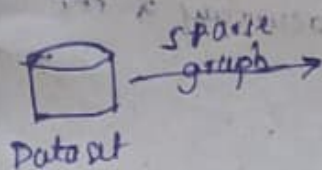 sparse
graph
Dataset